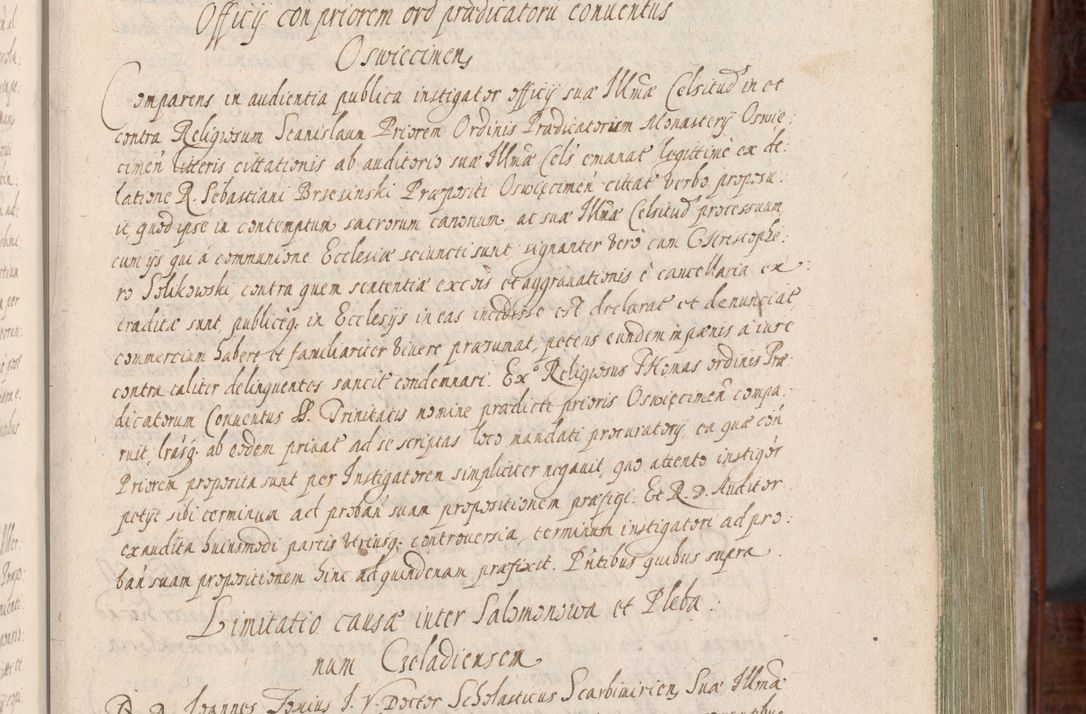 Officij con priorem ord prædicatorū conuentus
Oswiecimen̄
Comparens in audientia publica instigator officij suæ Illmæ Celsitud in et
contra Religiosum Stanislaum Priorem Ordinis Prædicatorum Monasterij Oswie:
cimen̄ litteris cittationis ab auditorio suæ Illmæ Cels emanat legittime ex de:
latione R. Sebastiani Brzesinski Præpositi Oswięcimen̄ cittat verbo proposu:
it, quod ipse in contemptum sacrorum canonum, ac suæ Illmæ Celsitud processuum
cum ijs qui á communione Ecclesiæ seiuncti sunt, signanter verò cum Christophe:
ro Solikowski, contra quem sententiæ excōis et aggrauationis è cancellaria ex
traditæ sunt, publicéq; in Ecclesijs in eas incidisse est declarat et denunciat
commercium habere et familiariter viuere præsumat, petens eundem in pænis à iure
contra taliter delinquentes sancit condemnari. Exº Religiosus Thomas ordinis Præ:
dicatorum Conuentus SS. Trinitatis nomine prædicti prioris Oswięcimen̄ compa:
ruit, lrasq; ab eodem priuat ad se scriptas loco mandati procuratorij, ea quæ cón
Priorem proposita sunt per Instigatorem simpliciter negauit, quo attento instigór
petijt sibi terminum ad proban̄ suam propositionem præfigi. Et R. D. Auditor
exaudita huiusmodi partis vtriusq; controuersia, terminum instigatori ad pro:
ban̄ suam propositionem hinc ad quindenam præfixit. Pn̄tibus quibus supra
Limitatio causæ inter Salomonowa et Pleba:
num Czeladiensem
R. D. Ioannes Foxius I. V. Doctor Scholasticus Scarbimirien, Suæ Illmæ